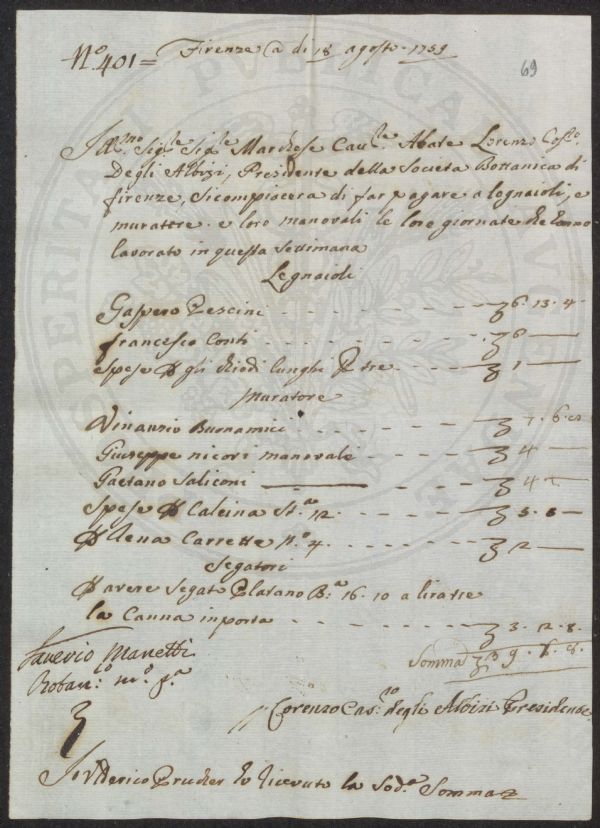 No. 401 = Firenze a di 18 agosto 1759
69
Ill.mo Sig.re Sig.re Marchese Cav.re Abate Lorenzo
Degli Albizi, Presidente della Societa Bottanica di
firenze, si compiacera di far pagare a legnaioli, e
muratore e loro manovali le loro giornate che anno
lavorato in questa Settimana
Legnaioli
Gaspero Pescini 6. 13. 4
francesco Conti 6 —
Spese gli Chiodi lunghi tre 1 —
Muratore
Vinanzio Buonamici 7. 6
Giuseppe nicori manovale 4 —
Gaetano Saliconi 4
Spese Calcina St.a 12 5. 6 —
Rena Carrette No. 4 2 —
Segatori
avere Segato Platano B.a 16. 10 a lira tre
la Canna inporta 3. 12. 8.
Saverio Manetti Somma 39. 8.
Botan.co
Lorenzo degli Albizi Presidente
Io Federico Prucker ho ricevuto la Sod.a Somma